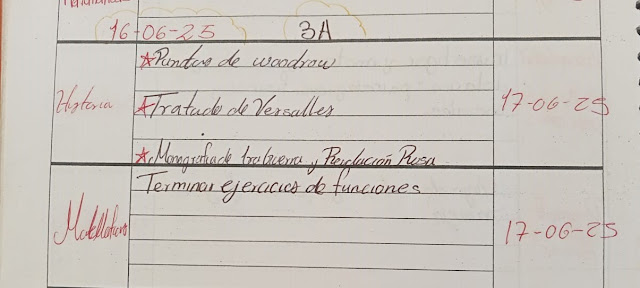 16-06-25 3A
★Puntos de woodrow
Historia ★Tratado de Versalles 17-06-25
★Monografia de 1ra Guerra y Revolución Rusa
Terminar ejercicios de funciones
17-06-25